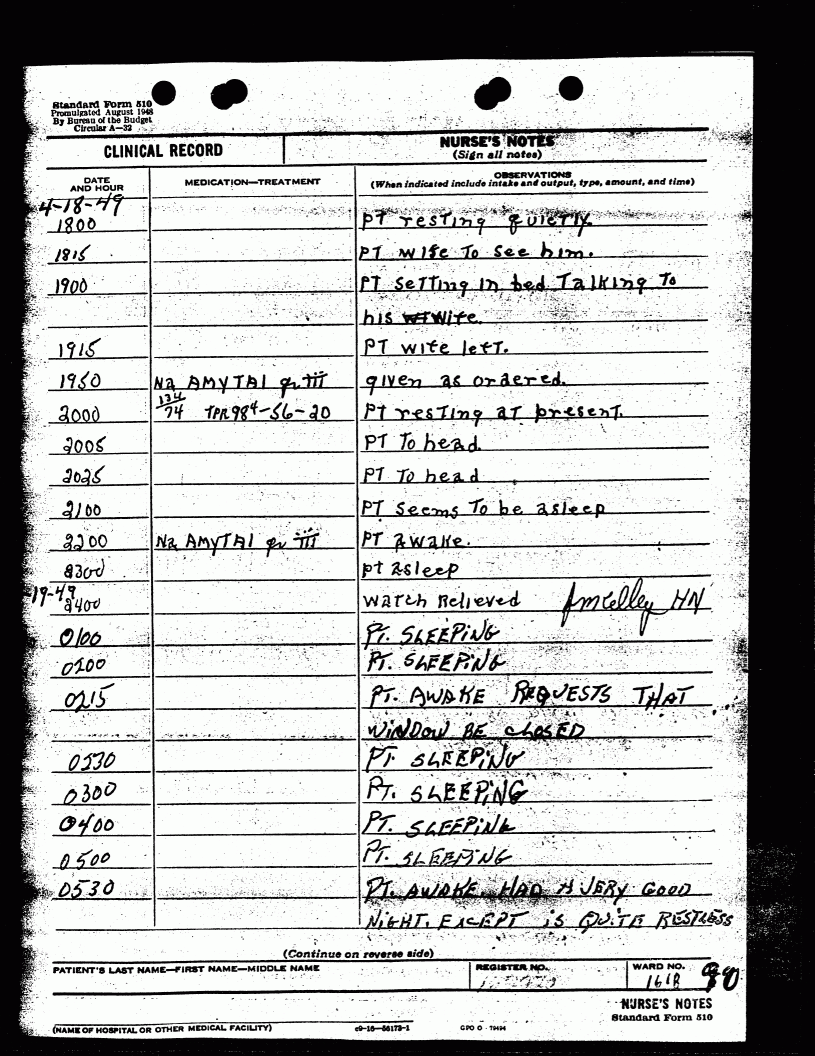 Standard Form 510
Promulgated August 1948
By Bureau of the Budget
Circular A—32
CLINICAL RECORD
NURSE'S NOTES
(Sign all notes)
DATE AND HOUR
MEDICATION—TREATMENT
OBSERVATIONS
(When indicated include intake and output, type, amount, and time)
4-18-49
1800 PT resting quietly.
1815 PT wife To see him.
1900 PT setting in bed Talking To
his wife.
1915 PT wife left.
1950 Na AMYTAl gr III given as ordered.
2000 134/74 TPR 98⁴-56-20 PT resting at present.
2005 PT To head.
2025 PT To head
2100 PT seems To be asleep
2200 Na AMYTAl gr III PT awake.
2300 pt asleep
19-49
2400 watch Relieved HN
0100 PT. SLEEPING
0200 PT. SLEEPING
0215 PT. AWAKE REQUESTS THAT
WINDOW BE CLOSED
0530 PT. SLEEPING
0300 PT. SLEEPING
0400 PT. SLEEPING
0500 PT. SLEEPING
0530 PT. AWAKE. HAD A VERY GOOD
NIGHT. EXCEPT is QUITE RESTLESS
(Continue on reverse side)
PATIENT'S LAST NAME—FIRST NAME—MIDDLE NAME
REGISTER NO.
WARD NO.
161B
90
NURSE'S NOTES
Standard Form 510
(NAME OF HOSPITAL OR OTHER MEDICAL FACILITY)
c9—16—56173-1
GPO O - 79494